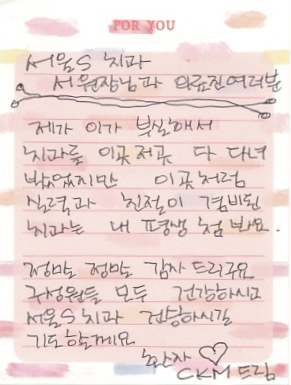 FOR YOU
서울S 치과
서원장님과 의료진여러분
제가 이가 부실해서
치과를 이곳저곳 다 다녀
봤었지만 이곳처럼
실력과 친절이 겸비된
치과는 내 평생 첨 봐요.
정말 정말 감사 드리구요
구성원들 모두 건강하시고
서울S 치과 건승하시길
기도할께요
환자 ♡
CKM 드림